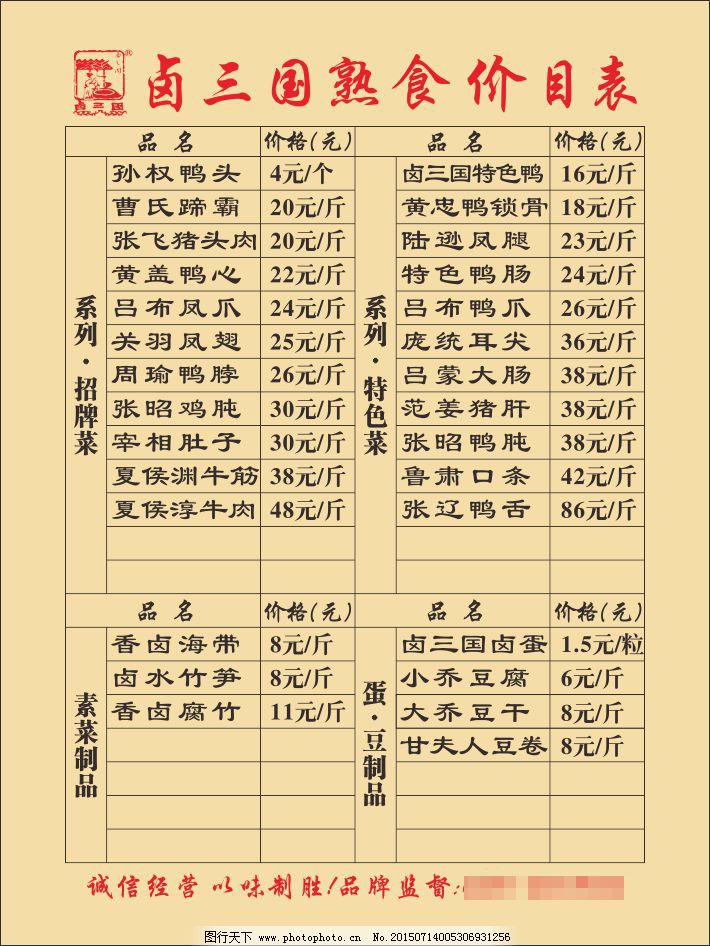 卤三国®
卤三国熟食价目表
品名 价格(元) 品名 价格(元)
系列·招牌菜 系列·特色菜
孙权鸭头 4元/个 卤三国特色鸭 16元/斤
曹氏蹄霸 20元/斤 黄忠鸭锁骨 18元/斤
张飞猪头肉 20元/斤 陆逊凤腿 23元/斤
黄盖鸭心 22元/斤 特色鸭肠 24元/斤
吕布凤爪 24元/斤 吕布鸭爪 26元/斤
关羽凤翅 25元/斤 庞统耳尖 36元/斤
周瑜鸭脖 26元/斤 吕蒙大肠 38元/斤
张昭鸡肫 30元/斤 范姜猪肝 38元/斤
宰相肚子 30元/斤 张昭鸭肫 38元/斤
夏侯渊牛筋 38元/斤 鲁肃口条 42元/斤
夏侯淳牛肉 48元/斤 张辽鸭舌 86元/斤
品名 价格(元) 品名 价格(元)
素菜制品 蛋·豆制品
香卤海带 8元/斤 卤三国卤蛋 1.5元/粒
卤水竹笋 8元/斤 小乔豆腐 6元/斤
香卤腐竹 11元/斤 大乔豆干 8元/斤
甘夫人豆卷 8元/斤
诚信经营 以味制胜!品牌监督:
图行天下 www.photophoto.cn No.20150714005306931256